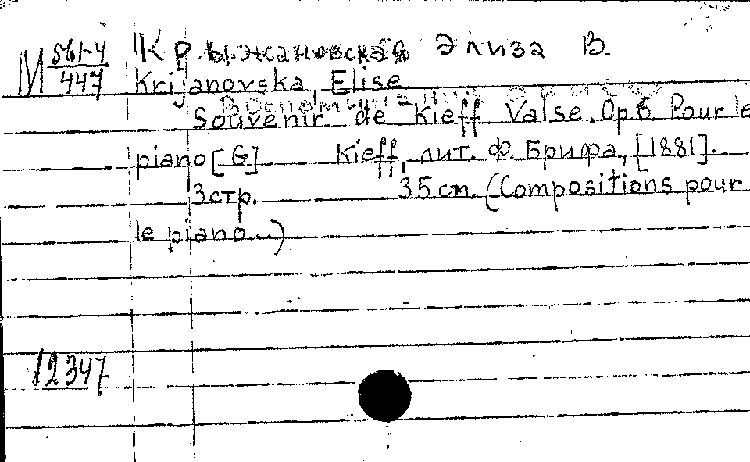 М 561-4
447
Крыжановская Элиза В.
Krijanovska, Elise
Souvenir de Kieff Valse. Op. 6 Pour le
piano [G] Kieff, лит. Ф. Брифа, [1881].
3 стр. 35 см. (Compositions pour
le piano...)
12347